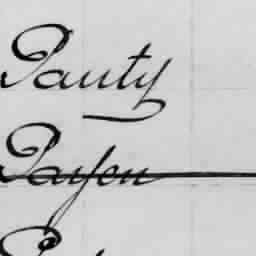 Pauty
Paysen